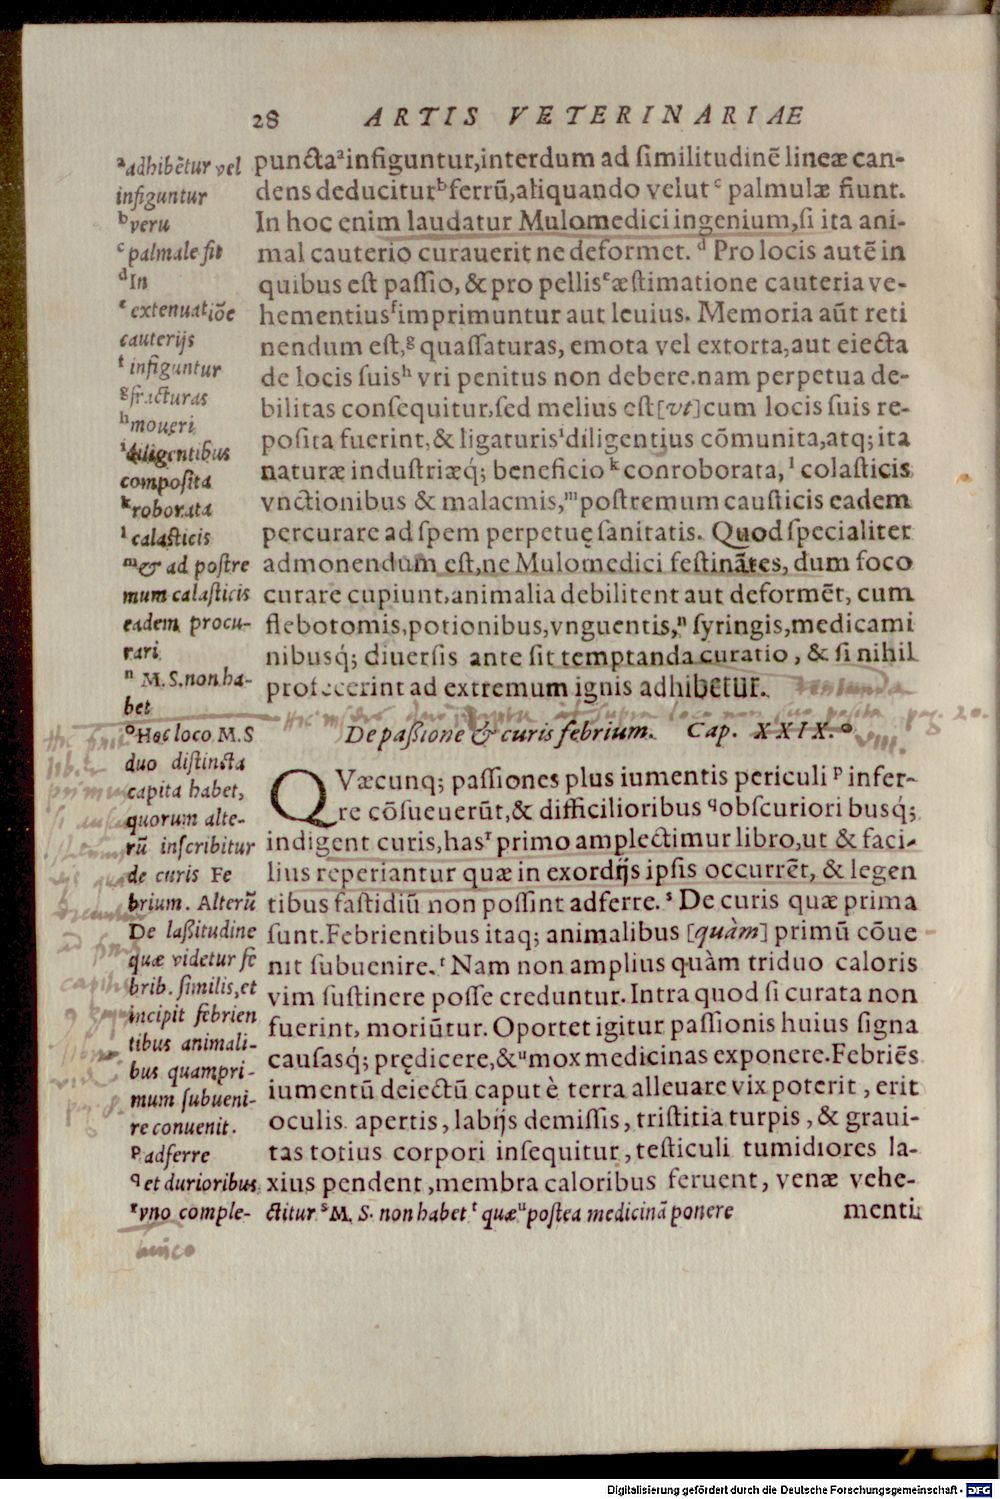 28 ARTIS VETERINARIAE
puncta ᵃ infiguntur, interdum ad ſimilitudinē lineæ can-
dens deducitur ᵇ ferrū, aliquando velut ᶜ palmulæ fiunt.
In hoc enim laudatur Mulomedici ingenium, ſi ita ani-
mal cauterio curauerit ne deformet. ᵈ Pro locis autē in
quibus eſt paſſio, & pro pellis ᵉ æſtimatione cauteria ve-
hementius ᶠ imprimuntur aut leuius. Memoria aūt reti
nendum eſt, ᵍ quaſſaturas, emota vel extorta, aut eiecta
de locis ſuis ʰ vri penitus non debere. nam perpetua de-
bilitas conſequitur, ſed melius eſt [vt] cum locis ſuis re-
poſita fuerint, & ligaturis ⁱ diligentius cōmunita, atq; ita
naturæ induſtriæq́; beneficio ᵏ conroborata, ˡ colaſticis
vnctionibus & malacmis, ᵐ poſtremum cauſticis eadem
percurare ad ſpem perpetuę ſanitatis. Quod ſpecialiter
admonendum eſt, ne Mulomedici feſtinātes, dum foco
curare cupiunt, animalia debilitent aut deformēt, cum
flebotomis, potionibus, vnguentis, ⁿ ſyringis, medicami
nibusq́; diuerſis ante ſit temptanda curatio, & ſi nihil
profecerint ad extremum ignis adhibetur.
De paßione & curis febrium. Cap. XXIX. ᵒ
VIII.
QVæcunq; paſſiones plus iumentis periculi ᵖ infer-
re cōſueuerūt, & difficilioribus ᑫ obſcurioribusq́;
indigent curis, has ʳ primo amplectimur libro, ut & faci-
lius reperiantur quæ in exordijs ipſis occurrēt, & legen
tibus faſtidiū non poſſint adferre. ˢ De curis quæ prima
ſunt. Febrientibus itaq; animalibus [quàm] primū cōue
nit ſubuenire. ᵗ Nam non amplius quàm triduo caloris
vim ſuſtinere poſſe creduntur. Intra quod ſi curata non
fuerint, moriūtur. Oportet igitur paſſionis huius ſigna
cauſasq́; prędicere, & ᵘ mox medicinas exponere. Febriēs
iumentū deiectū caput è terra alleuare vix poterit, erit
oculis apertis, labijs demiſſis, triſtitia turpis, & graui-
tas totius corpori inſequitur, teſticuli tumidiores la-
xius pendent, membra caloribus feruent, venæ vehe-
menti
ᵃ adhibētur vel
infiguntur
ᵇ veru
ᶜ palmale fit
ᵈ In
ᵉ extenuatiōe
cauterijs
ᶠ infiguntur
ᵍ fracturas
ʰ moueri
ⁱ diligentibus
compoſita
ᵏ roborata
ˡ calaſticis
ᵐ & ad poſtre
mum calaſticis
eadem procu-
rari
ⁿ M. S. non ha-
bet
ᵒ Hoc loco M. S
duo diſtincta
capita habet,
quorum alte-
rū inſcribitur
de curis Fe
brium. Alterū
De laßitudine
quæ videtur fe
brib. ſimilis, et
incipit febrien
tibus animali-
bus quampri-
mum ſubueni-
re conuenit.
ᵖ adferre
ᑫ et durioribus
ʳ vno comple-
ctitur ˢ M. S. non habet ᵗ quæ ᵘ poſtea medicinā ponere
Digitalisierung gefördert durch die Deutsche Forschungsgemeinschaft - DFG